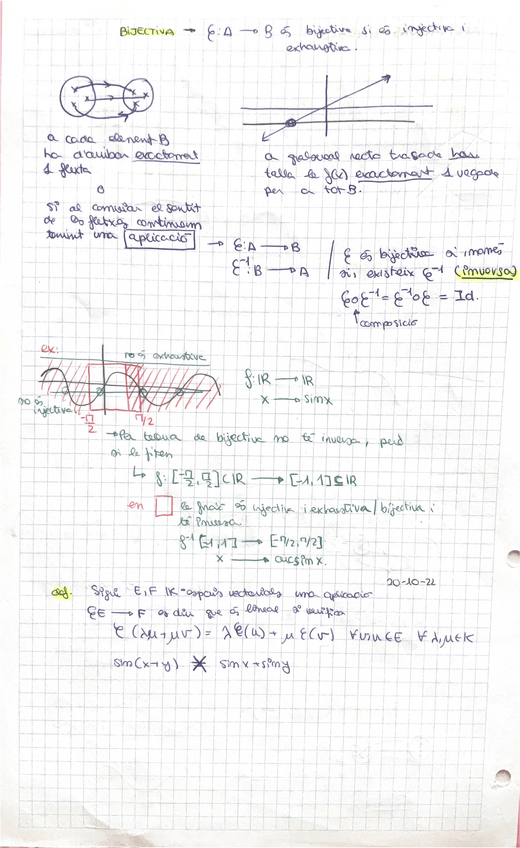 BIJECTIVA → ξ: A → B és bijectiva si és injectiva i
exhaustiva.
a cada element B
ha d'arribar exactament
1 fletxa
o
si al canviar el sentit
de les fletxes continuem
tenint una aplicació
a qualsevol recta traçada
talla la f(x) exactament 1 vegada
per a tot B.
→ ξ: A → B
ξ⁻¹: B → A
ξ és bijectiva si i només
si, existeix ξ⁻¹ (inversa)
ξ∘ξ⁻¹ = ξ⁻¹∘ξ = Id.
composició
ex:
no és exhaustiva
no és
injectiva
-π/2
π/2
f: IR → IR
x → sinx
de bijectiva no té inversa, però
si la
↳ f: [-π/2, π/2] ⊂ IR → [-1, 1] ⊆ IR
en
la funció és injectiva i exhaustiva / bijectiva i
té inversa
f⁻¹ [-1, 1] → [π/2, π/2]
x → arcsin x.
20-10-22
def. Sigui E, F IK-espais vectorials una aplicació
ξE → F es diu que és lineal si verifica
ξ(λμ + μv) = λξ(u) + μξ(v) ∀v,u∈E ∀λ,μ∈K
sin(x+y) ≠ sinx + siny